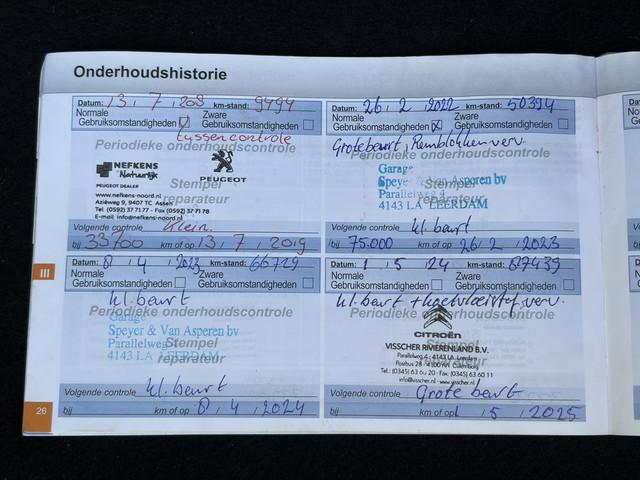 Onderhoudshistorie
Datum: 13 , 7 , 20 km-stand: 9494
Normale Gebruiksomstandigheden Zware Gebruiksomstandigheden
tussencontrole
Periodieke onderhoudscontrole
NEFKENS
Natuurlijk
PEUGEOT DEALER
PEUGEOT
www.nefkens-noord.nl
Aziëweg 9, 9407 TC Assen
Tel (0592) 37 71 77 - Fax (0592) 37 71 78
E-mail info@nefkens-noord.nl
Stempel reparateur
Volgende controle Klein.
bij 33700 km of op 13 , 7 , 2019
Datum: 26 , 2 , 2022 km-stand: 50394
Normale Gebruiksomstandigheden Zware Gebruiksomstandigheden
Grote beurt, Remblokken verv.
Periodieke onderhoudscontrole
Garage
Speyer & Van Asperen bv
Parallelweg 4
4143 LA LEERDAM
Stempel reparateur
Volgende controle kl. beurt
bij 75.000 km of op 26 , 2 , 2023
Datum: 4 , 2023 km-stand: 66729
Normale Gebruiksomstandigheden Zware Gebruiksomstandigheden
kl. beurt
Periodieke onderhoudscontrole
Garage
Speyer & Van Asperen bv
Parallelweg
4143 LA LEERDAM
Stempel reparateur
Volgende controle kl. beurt
bij km of op 4 , 2024
Datum: 1 , 5 , 24 km-stand: 87439
Normale Gebruiksomstandigheden Zware Gebruiksomstandigheden
kl. beurt + koelvloeistof verv.
Periodieke onderhoudscontrole
CITROËN
VISSCHER RIVIERENLAND B.V.
Parallelweg 4 - 4143 LA Leerdam
Postbus 28 - 4100 AA Culemborg
Tel.: (0345) 63 60 20 - Fax: (0345) 63 60 11
info@visscher.nl - www.visscher.nl
Stempel reparateur
Volgende controle Grote beurt
bij km of op 1 , 5 , 2025
III
26